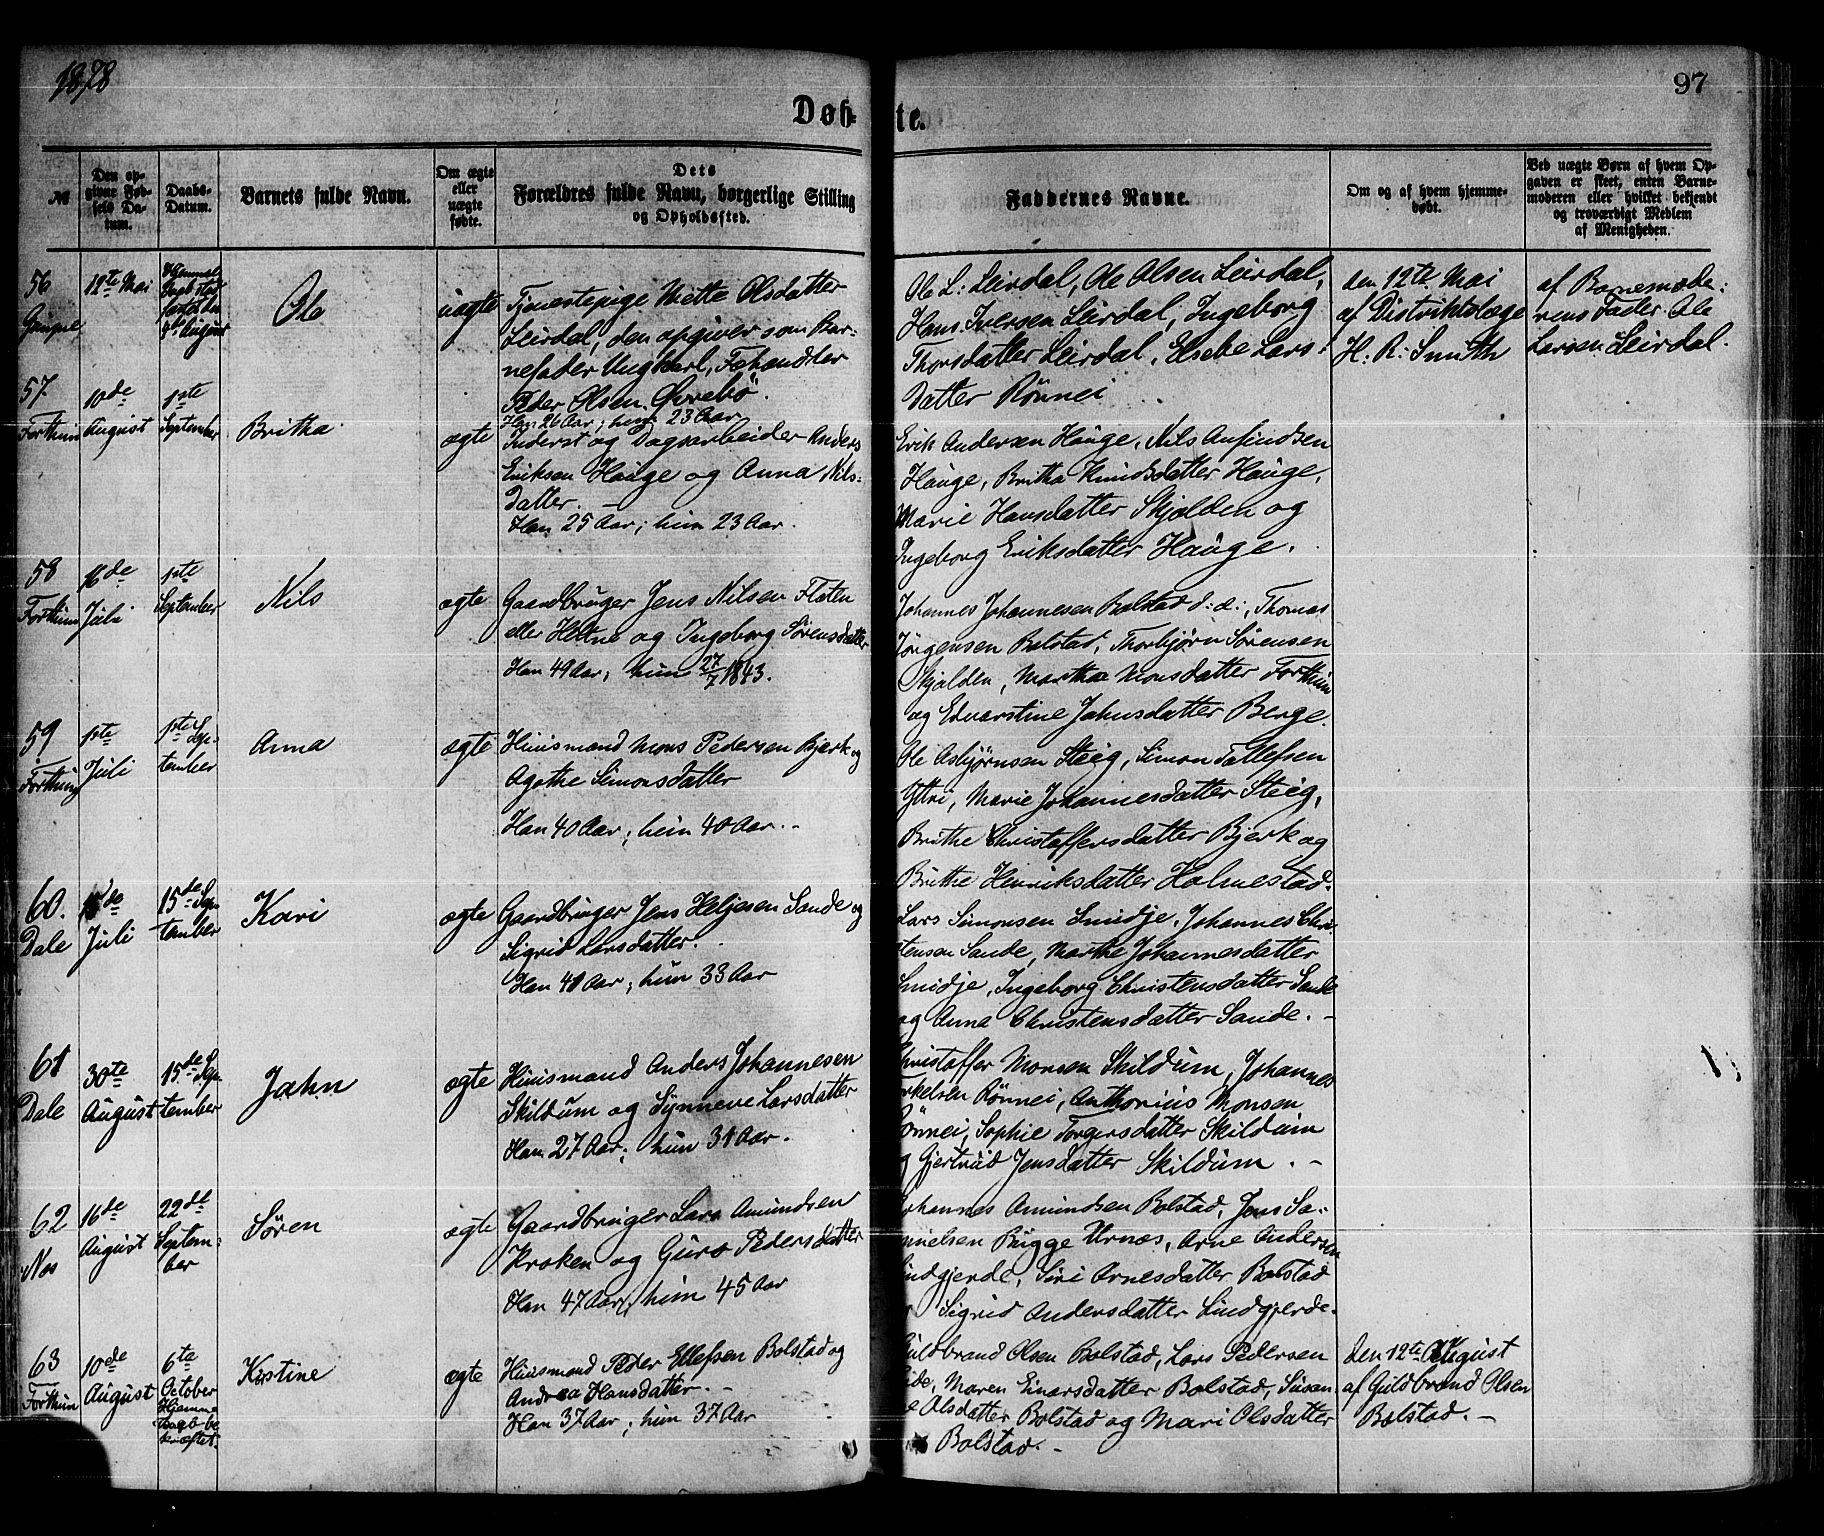 1878
97
Døbte.
№
Den opgivne Fødsels Datum.
Daabs-Datum.
Barnets fulde Navn.
Om ægte eller uægte fødte.
Dets Forældres fulde Navn, borgerlige Stilling og Opholdssted.
Faddernes Navne.
Om og af hvem hjemmedøbt.
Ved uægte Børn af hvem Opgaven er skeet, enten Barnemoderen eller hvilket bekjendt og troværdigt Medlem af Menigheden.
56
12te Mai
Ole
uægte
Tjenestepige Mette Olsdatter
Leirdal, den opgiver som Bar-
nefader Ungkarl, Fæhandler
Peder Olsen Øvrebö.
Han 26 Aar; hun 23 Aar
Ole L: Leirdal, Ole Olsen Leirdal,
Hans Iversen Leirdal, Ingeborg
Thorsdatter Leirdal, Elsebe Lars-
datter Rönnei
den 12te Mai
af Distriktslæge
H. R. Smith
af Barnemode-
rens Fader Ole
Larsen Leirdal.
57
Forthun
10de
August
1ste
September
Britha
ægte
Inderst og Dagsarbeider Anders
Eriksen Hauge og Anna Nils-
datter. -
Han 25 Aar; hun 23 Aar.
Erik Andersen Hauge, Nils Anfindsen
Hauge, Britha Knudsdatter Hauge,
Marie Hansdatter Skjolden og
Ingeborg Eriksdatter Hauge.
58
Forthun
16de
Juli
1ste
September
Nils
ægte
Gaardbruger Jens Nilsen Flaten
eller Hettne og Ingeborg Sørensdatter
Han 49 Aar, hun 27/7 1843.
Johannes Johannesen Bolstad d: æ:, Thomas
Jörgensen Bolstad, Thorbjørn Sørensen
Skjolden, Martha Monsdatter Forthun
og Edvarstine Johnsdatter Berge.
59
Forthun
1ste
Juli
1ste Sep-
tember
Anna
ægte
Huusmand Mons Pedersen Bjerk og
Agathe Simonsdatter
Han 40 Aar; hun 40 Aar. -
Ole Asbjørnsen Steig, Simon Tollefsen
Yttri, Marie Johannesdatter Steig,
Brithe Christoffersdatter Bjerk og
Brithe Henriksdatter Holmestad.
60.
Dale
Juli
15de Sep-
tember
Kari
ægte
Gaardbruger Jens Heljesen Sande og
Sigrid Larsdatter.
Han 41 Aar; hun 33 Aar
Lars Simonsen Smidje, Johannes Chri-
stensen Sande, Marthe Johannesdatter
Smidje, Ingeborg Christensdatter Sande
og Anna Christensdatter Sande. -
61
Dale
30te
August
15de Sep-
tember
Jahn
ægte
Huusmand Anders Johannesen
Skildum og Synneve Larsdatter
Han 27 Aar; hun 31 Aar.
Christoffer Monsen Skildum, Johannes
Torkelsen Rönnei, Anthonius Monsen
Rönnei, Sophie Torgersdatter Skildum
og Gjertrud Jensdatter Skildum. -
62
Næs
16de
August
22de
Septem-
ber
Sören
ægte
Gaardbruger Lars Amundsen
Kroken og Guro Pedersdatter
Han 47 Aar, hun 45 Aar
Johannes Amundsen Bolstad, Jens Sa-
muelsen Bugge Urnæs, Arne Andersen
Lindgjerde, Siri Arnesdatter Bolstad
Sigrid Andersdatter Lindgjerde.
63
Forthun
10de
August
6te
October
Hjemme
Daab be-
kræftet.
Kistine
ægte
Huusmand Peder Ellefsen Bolstad og
Andrea Hansdatter. -
Han 37 Aar; hun 37 Aar
Guldbrand Olsen Bolstad, Lars Pedersen
Eide, Maren Einarsdatter Bolstad, Susan-
ne Olsdatter Bolstad og Mari Olsdatter
Bolstad. -
Den 12te August
af Guldbrand Olsen
Bolstad. -